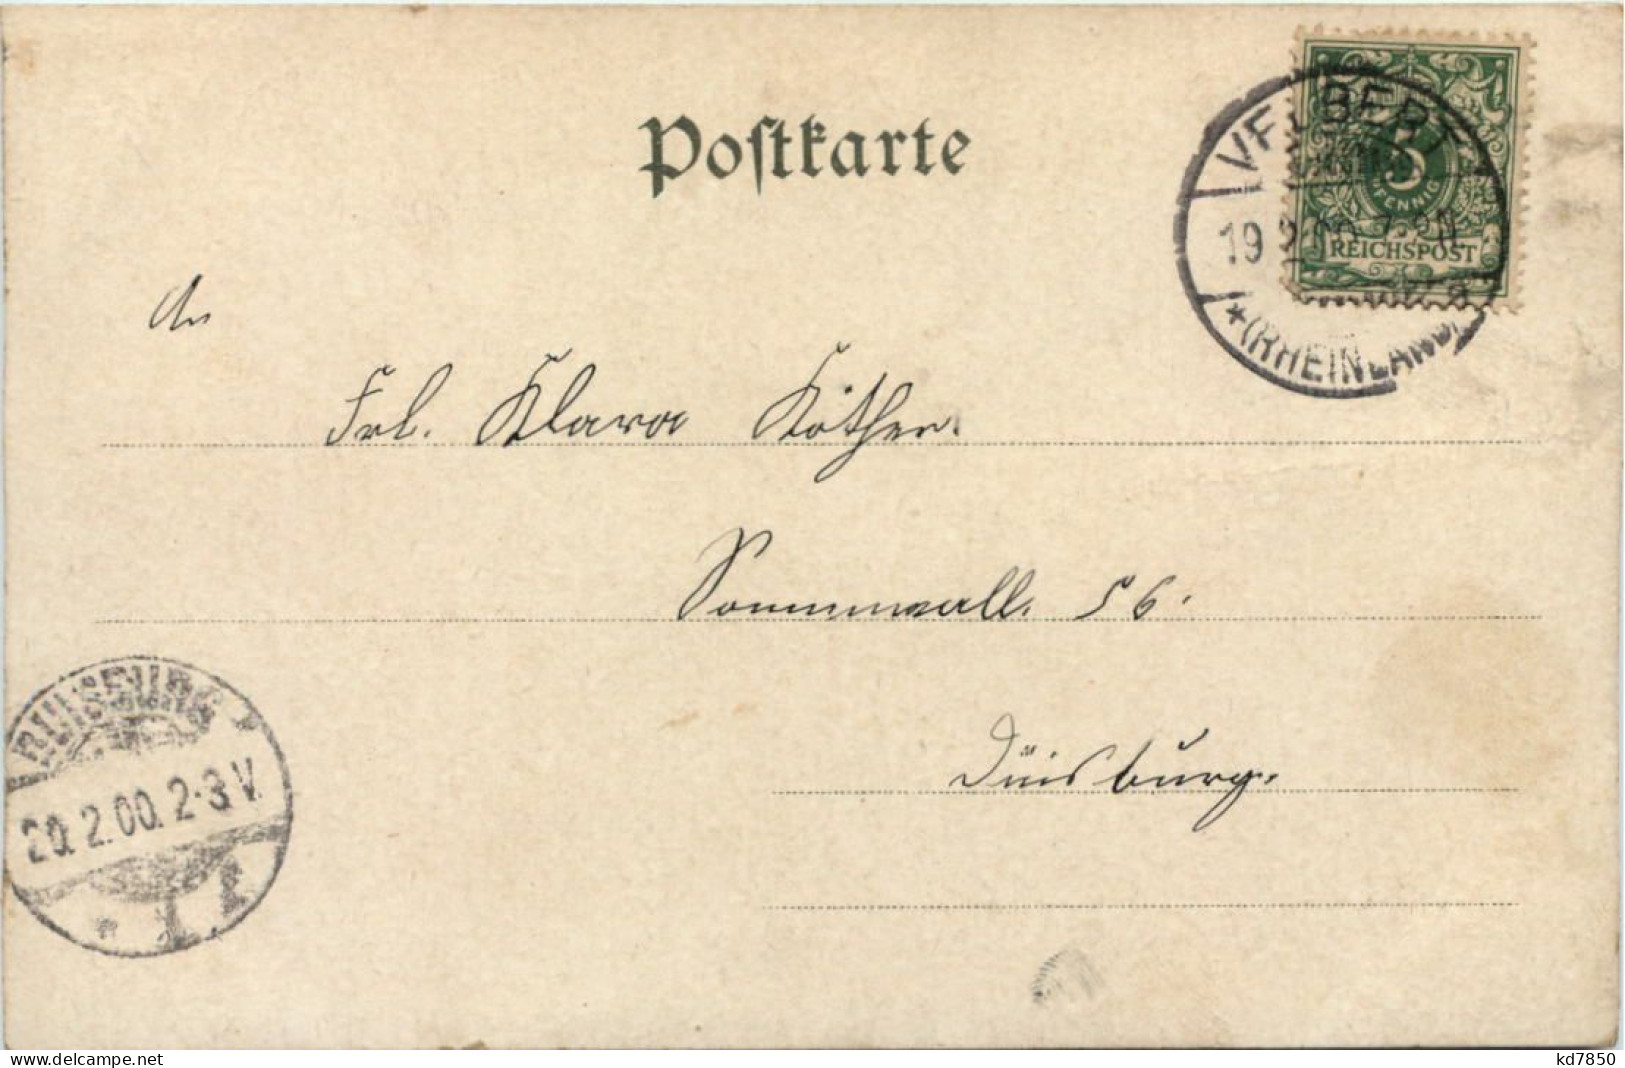 Postkarte
VELBERT
5
PFENNIG
REICHSPOST
19 2.00. 7-8N.
* (RHEINLAND)
An
Frl. Klara Köther.
Sonnenwall. 56.
Duisburg.
DUISBURG
20.2.00. 2-3V.
* 1
www.delcampe.net
kd7850